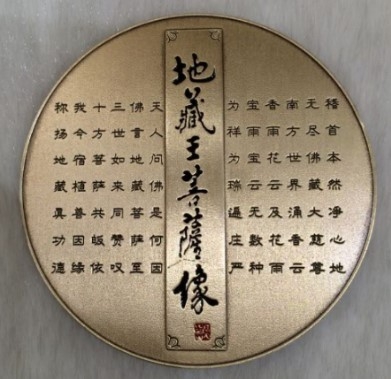 地藏王菩薩像
稽首本然净心地
无尽佛藏大慈尊
南方世界涌香云
香雨花云及花雨
宝雨宝云无数种
为祥为瑞遍庄严
天人问佛是何因
佛言地藏菩萨至
三世如来同赞叹
十方菩萨共皈依
我今宿植善因缘
称扬地藏真功德